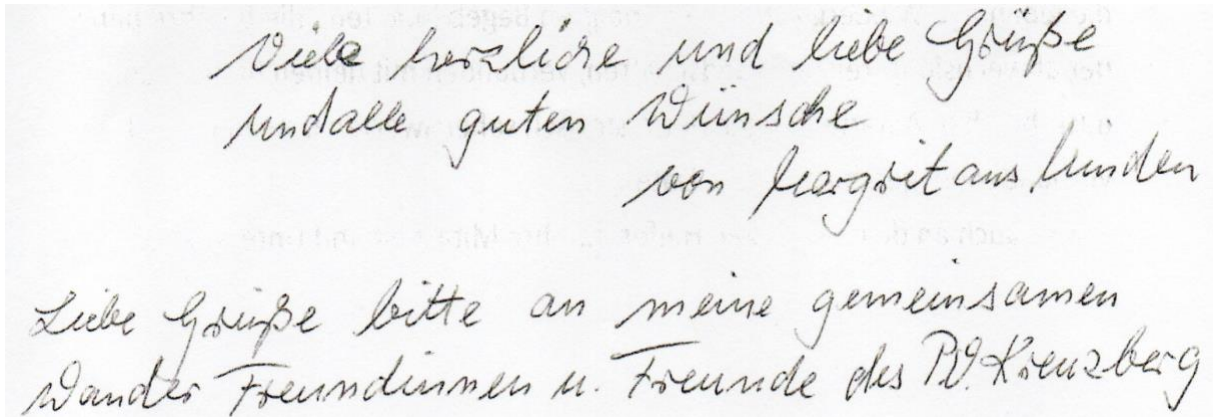 Viele herzliche und liebe Grüße
und alle guten Wünsche
von Margrit aus Minden
Liebe Grüße bitte an meine gemeinsamen
Wander Freundinnen u. Freunde des PV. Kreuzberg